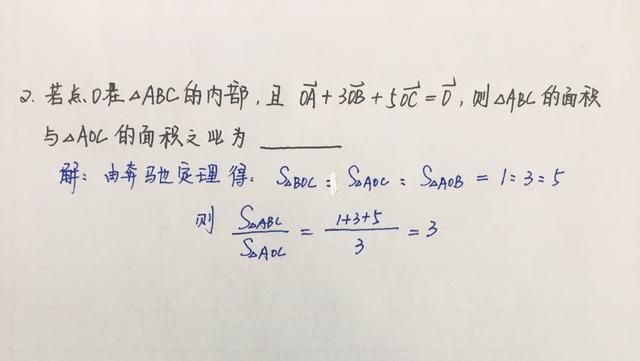 2. 若点O在△ABC的内部,且 OA⃗ + 3OB⃗ + 5OC⃗ = 0⃗, 则△ABC的面积
与△AOC的面积之比为 ______
解: 由奔驰定理得: S△BOC : S△AOC : S△AOB = 1:3:5
则 S△ABC / S△AOC = 1+3+5 / 3 = 3